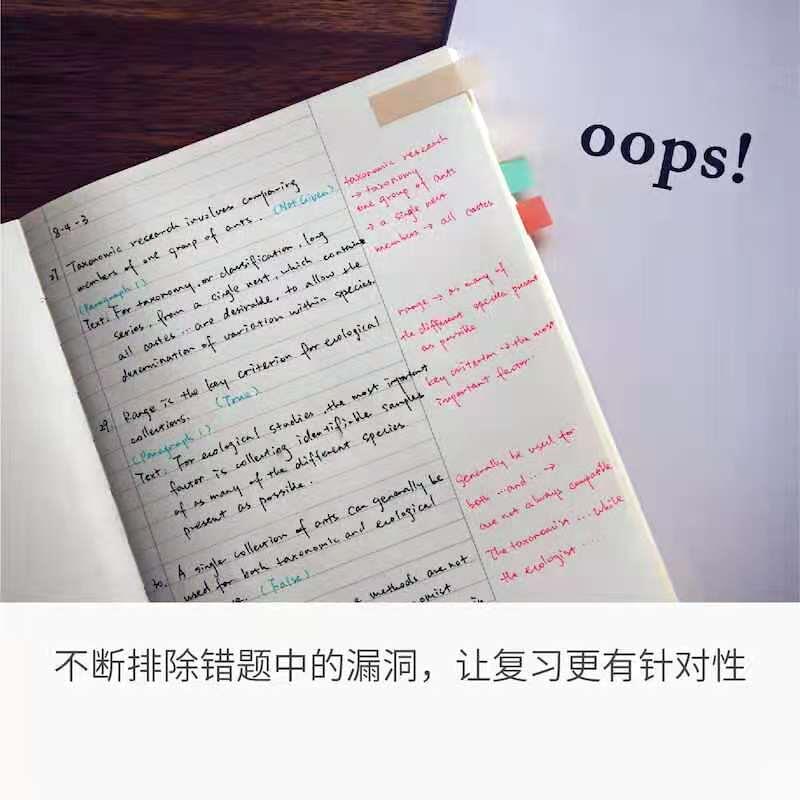 oops!
8-4-3
27. Taxonomic research involves comparing
members of one group of ants. (Not Given)
(Paragraph 1)
Text: For taxonomy, or classification, long
series, from a single nest, which contain
all castes ... are desirable, to allow the
determination of variation within species.
29. Range is the key criterion for ecological
collections. (True)
(Paragraph 1)
Text: For ecological studies, the most important
factor is collecting identifiable samples
of as many of the different species
present as possible.
30. A single collection of ants can generally be
used for both taxonomic and ecological
(False)
methods are not
taxonomic research
→ taxonomy
one group of ants
→ a single nest
members → all castes
range → as many of
the different species present
as possible
key criterion → the most
important factor.
generally be used for
both ... and ... →
are not always compatible
The taxonomist .... while
the ecologist ....
不断排除错题中的漏洞，让复习更有针对性